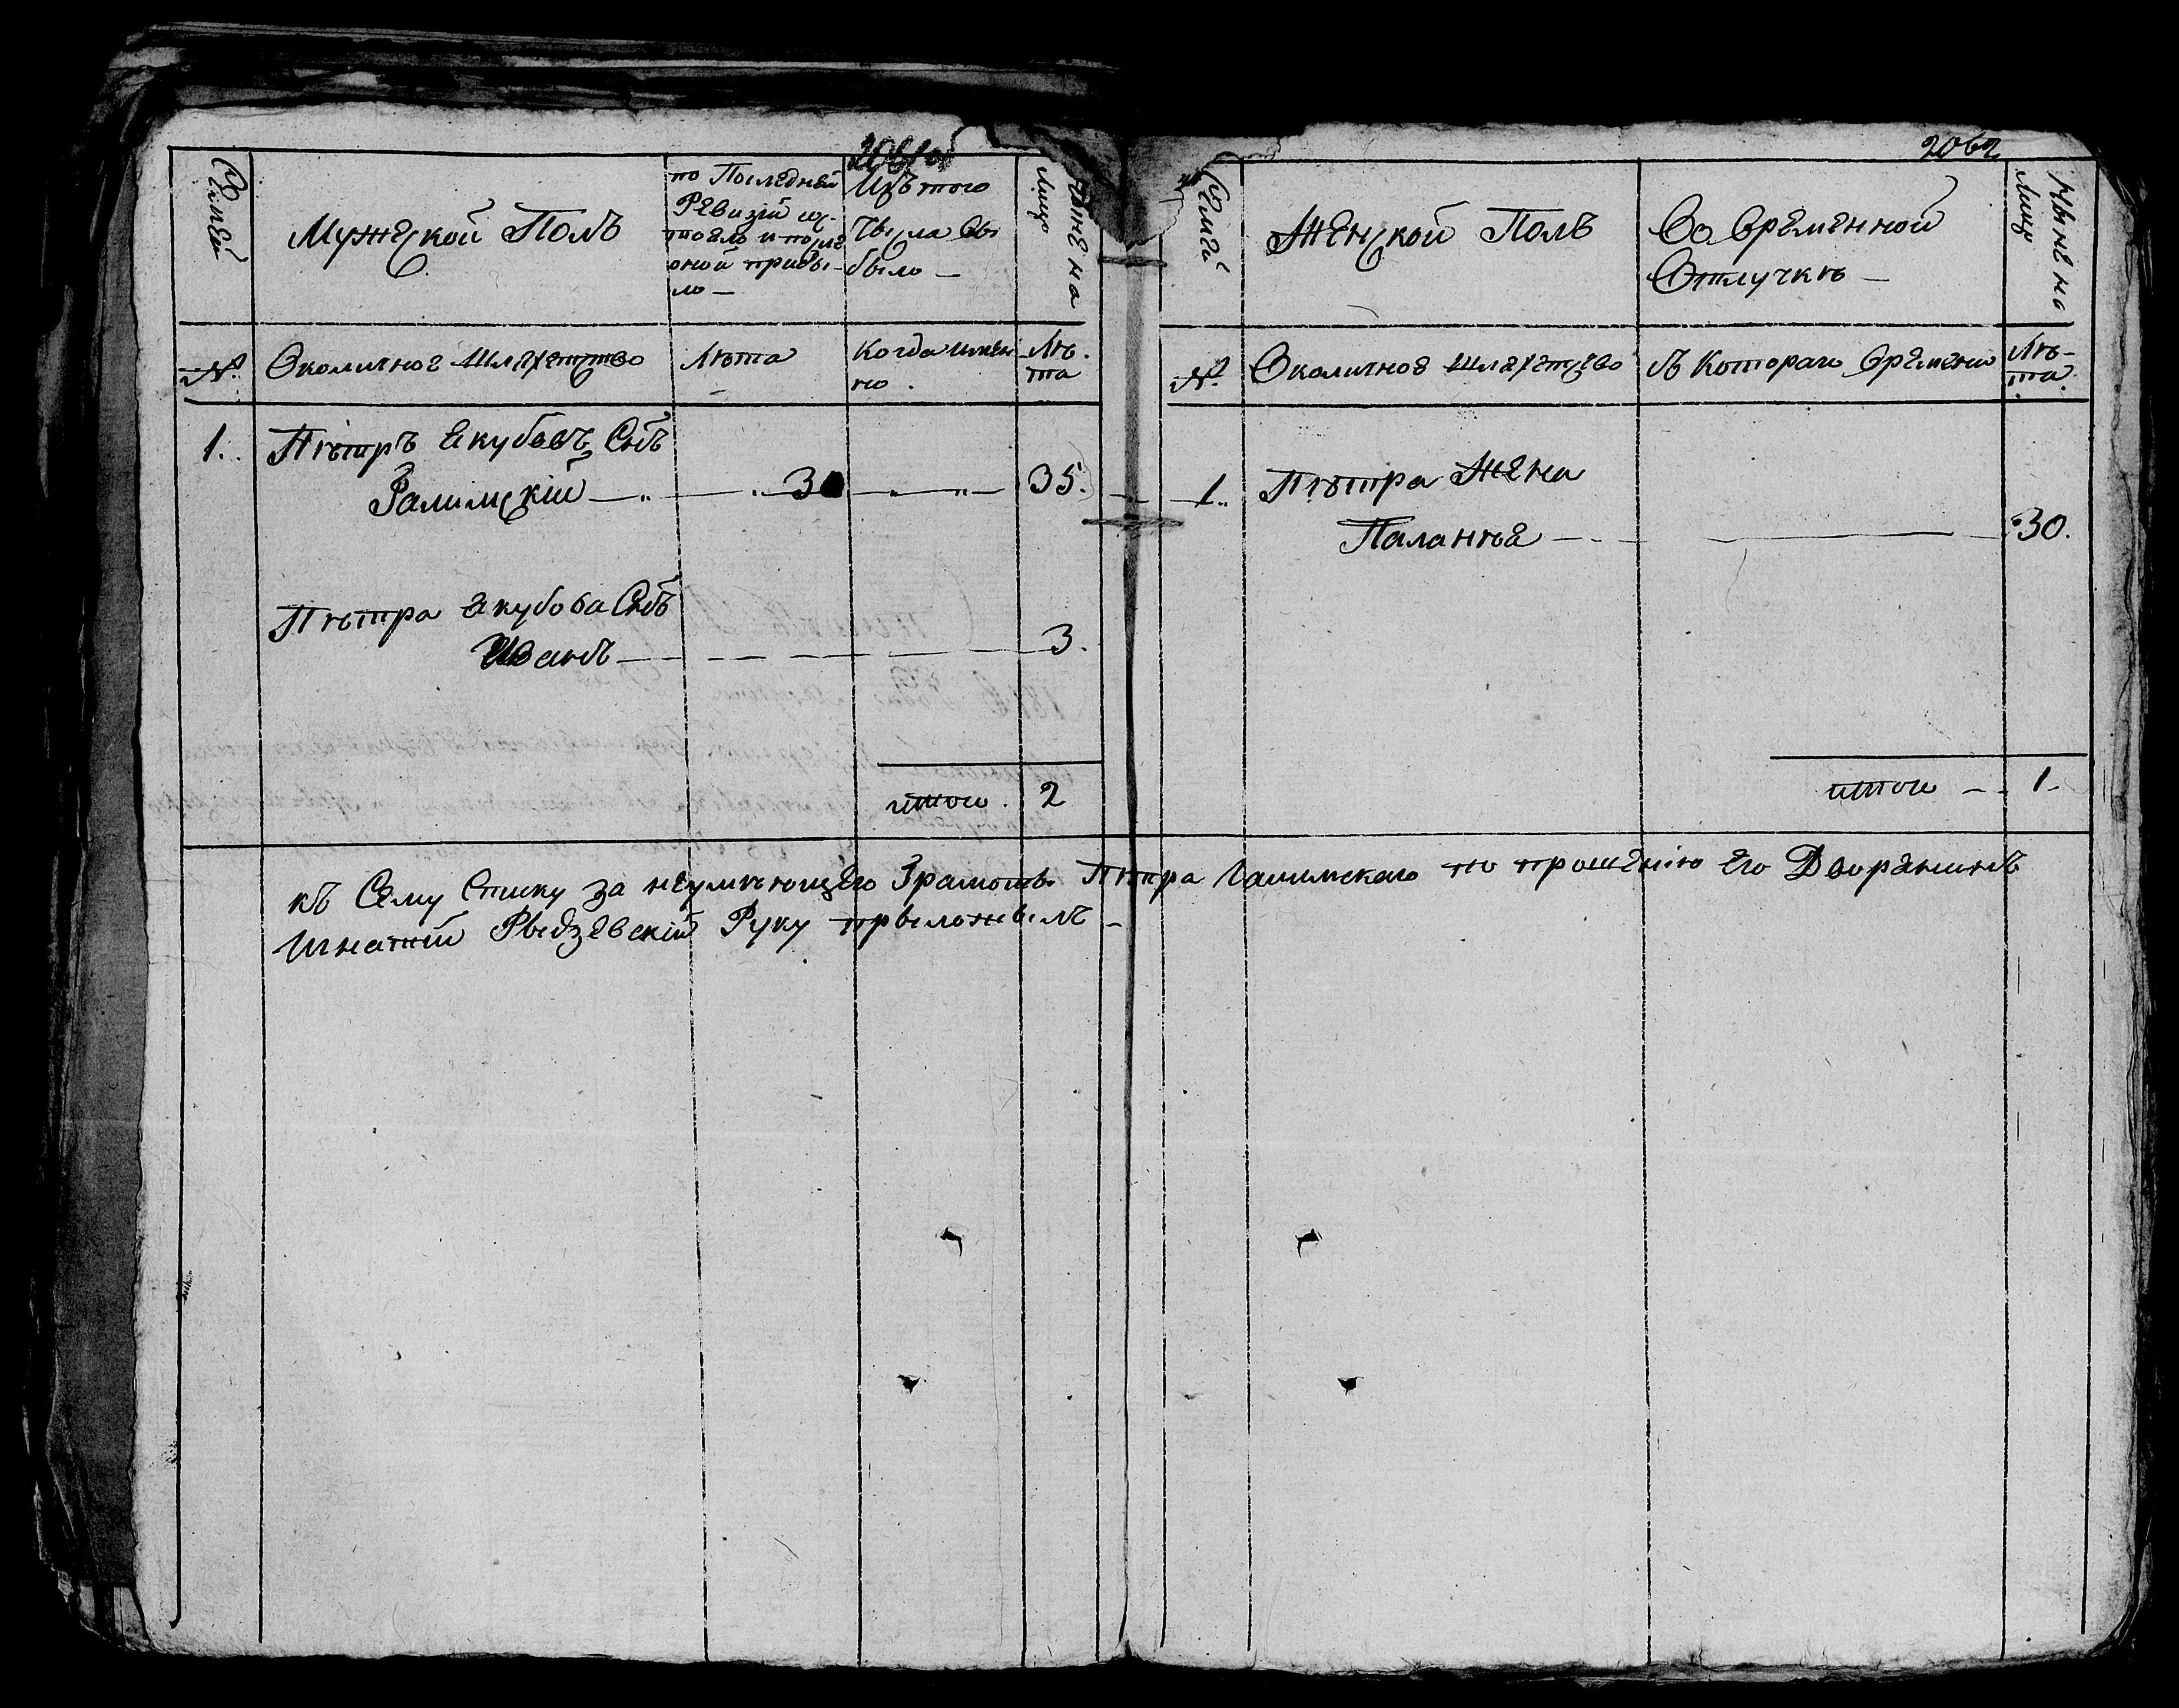 2062
Семей
Мужеской Полъ
по Последней
Ревизiи со-
тояло и после
оной прибы-
ло —
Изъ того
Числа вы
было —
Ныне на
лицо
№.
Околичное Шляхетство
Лѣта
Когда имен
но.
Лѣ.
та
1. Пѣтръ Якубовъ Снъ
30 35.
Пѣтра Якубова Снъ
Иванъ 3.
итого. 2
Семей
Женской Полъ
Во Временной
Отлучкѣ —
Ныне на
лицо
№.
Околичное Шляхетство
Съ Котораго Времени
Лѣ-
та.
1. Пѣтра Жена
Паланѣя 30.
итого — 1.
къ Сему Списку за неумѣющего Грамотѣ Пѣтра по прошенiю его Дворянинъ
Игнатiй Рыдзевскiй Руку прыложылъ –